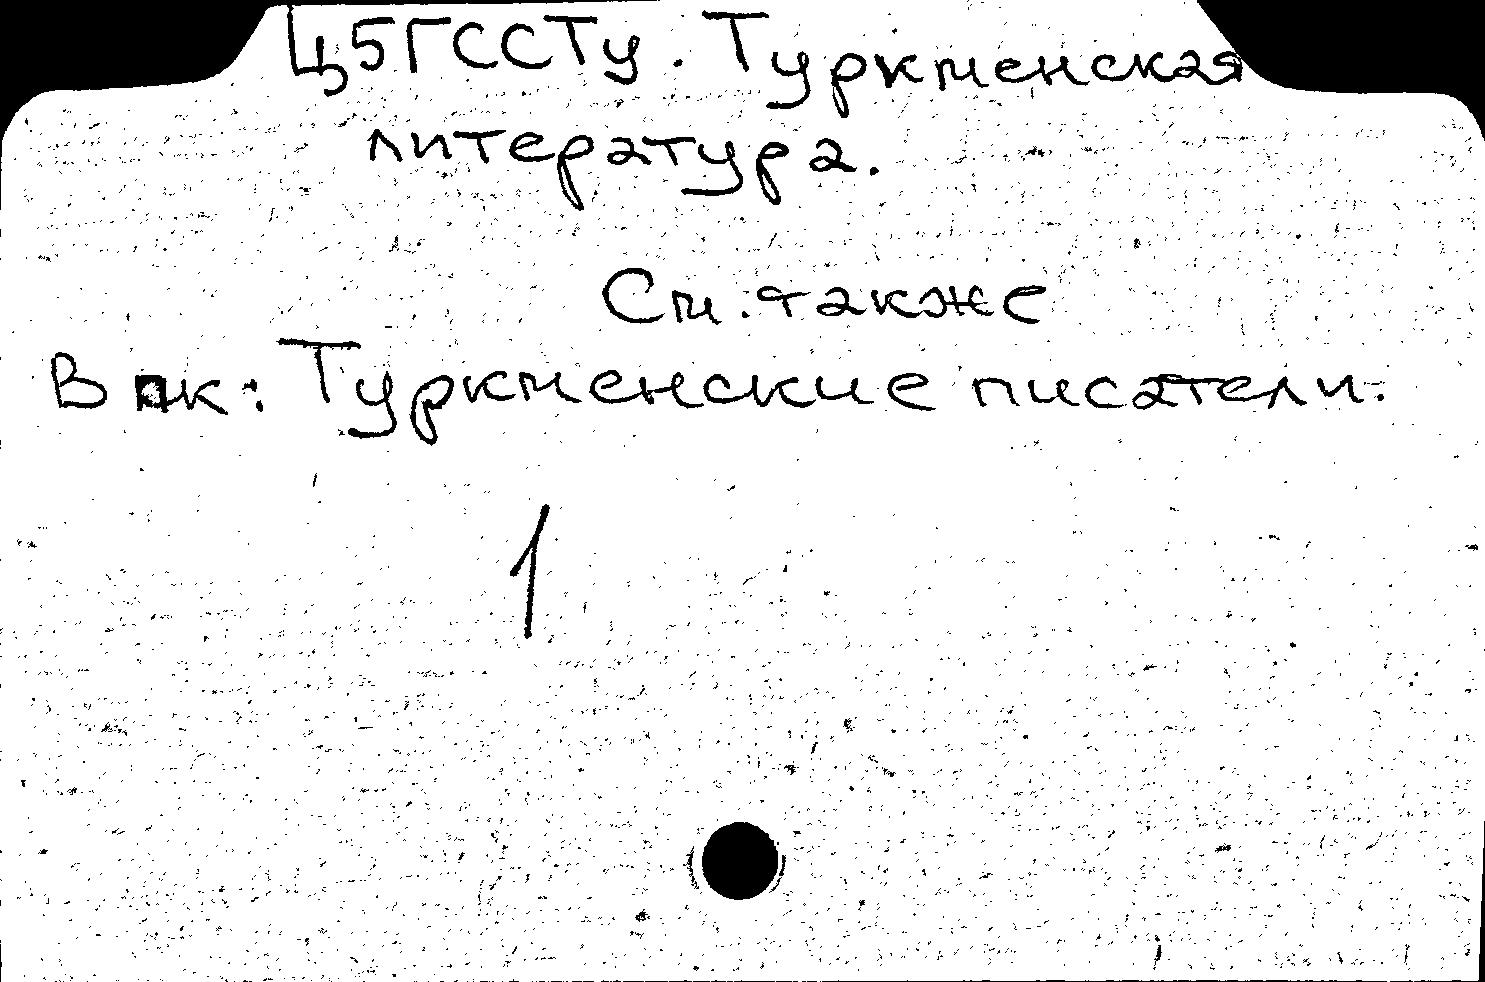 Ц5ГССТу. Туркменская
литература.
См. также
В пк: Туркменские писатели.
1